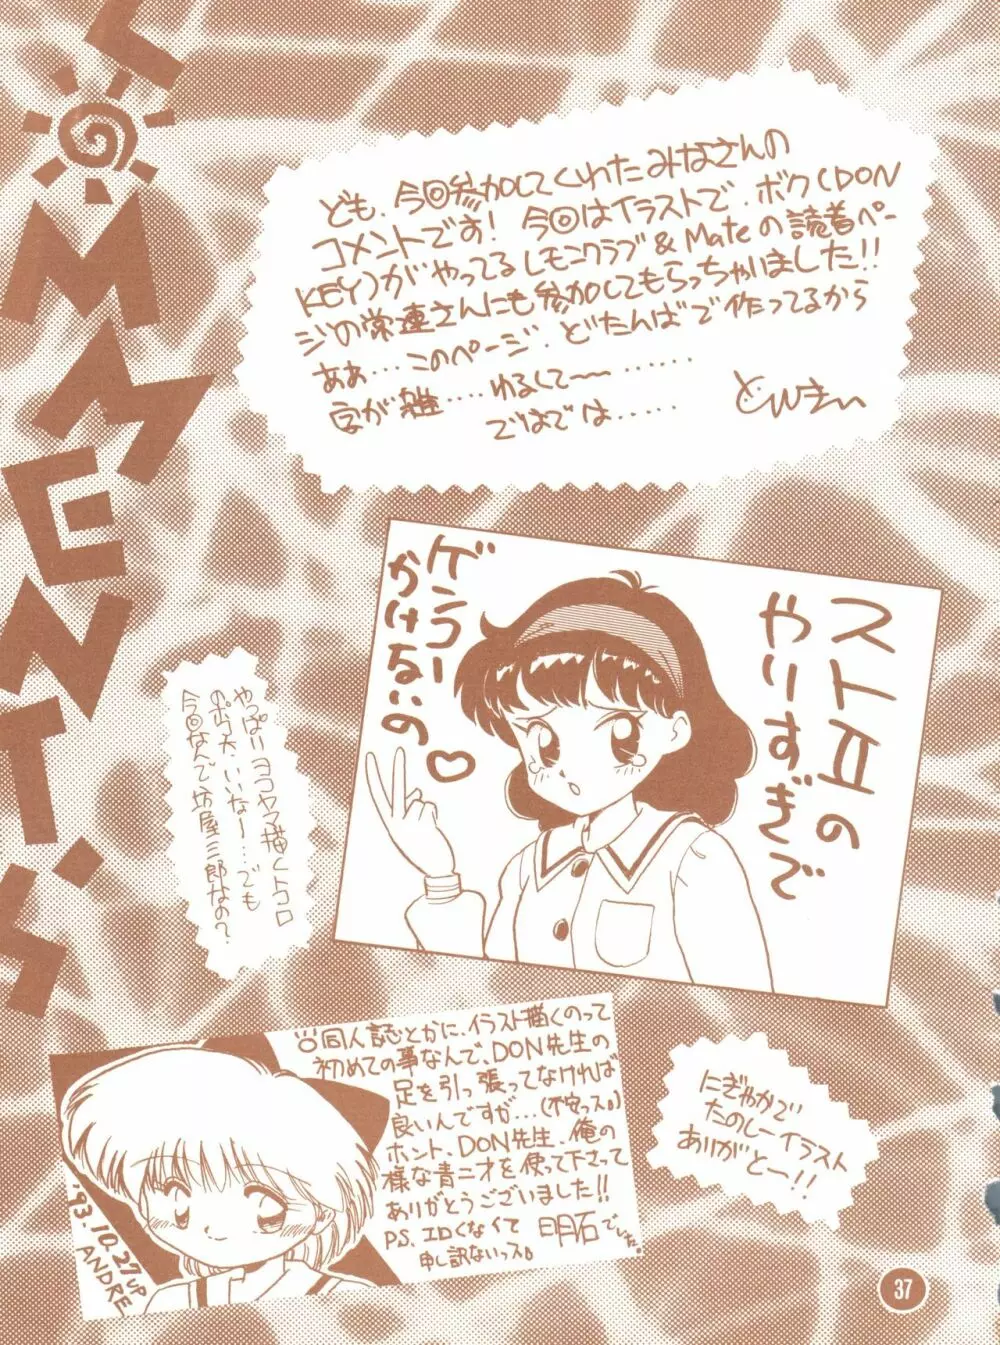 COMMENT'S
ども、今回参加してくれたみなさんの
コメントです！今回はイラストで、ボク(DON
KEY)がやってるレモンクラブ&Mateの読着ペー
ジの常連さんにも参加してもらっちゃいました!!
ああ…このページ、どたんばで作ってるから
字が雑…ゆるして〜……
ではでは……
どんきぃ
ストⅡの
やりすぎで
ゲンコー
かけないの
♡
やっぱりヨコヤマ描くトコロ
の
今回なんで坊屋三郎なの?
同人誌とかに、イラスト描くのって
初めての事なんで、DON先生の
足を引っ張ってなければ
良いんですが…(不安っス。)
ホント、DON先生、俺の
様な青二才を使って下さって
ありがとうございました!!
P.S. エロくなくて
申し訳ないっス。
明石でした。
'93.10.27 UP
ANDRE
にぎやかで
たのしーイラスト
ありがとー!!
37